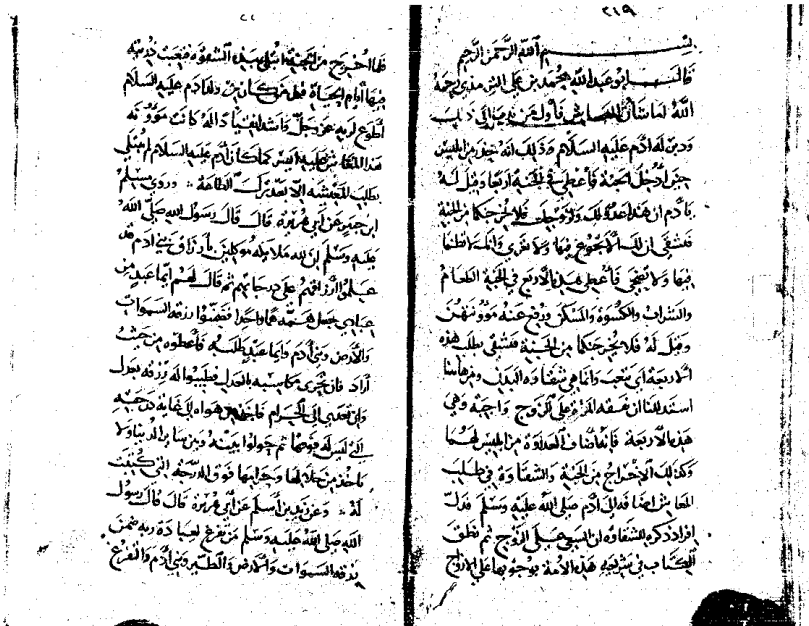 ٢١٩
بسم الله الرحمن الرحيم
قال ابو عبدالله محمد بن علي الترمذي رحمة
الله اما شأن المعاش فأول من
ودبر له ادم عليه السلام وذلك انه حذر من ابليس
حين أدخل الجنة فأعطي في الجنة اربعا وقيل له
يآدم ان هذا عدو لك ولزوجك فلا يخرجنكما من الجنة
فتشقى ان لك ألا تجوع فيها ولا تعرى وانك لا تظمأ
فيها ولا تضحى فأعطي هذه الاربع في الجنة الطعام
والشراب والكسوة والمسكن ورفع عنه مؤونتهن
وقيل له فلا يخرجنكما من الجنة فتشقى بطلب هذه
الاربعة اي تتعب وانما هي شقاوة البدن ومن هاهنا
استدللنا ان نفقة المرأة على الزوج واجبة وهي
هذه الاربعة فإنما ضاف العداوة من ابليس لهما
وكذلك الاخراج من الجنة والشقاوة في طلب
المعاش اضافه الى ادم صلى الله عليه وسلم فدل
افراد ذكره للشقاوة ان السعي على الزوج ثم نطق
الكتاب في شريعة هذه الأمة بوجوبها على الازواج
فلما اخرج من الجنة ابتلي بهذه الشقوة فتعبت ذريته
فيها أيام الحياة فكل من كان من ولد ادم عليه السلام
أطوع لربه عز وجل واشد انقيادا له كانت مؤونة
هذا المعاش عليه ايسر كما كان ادم عليه السلام لم يبتلى
بطلب المعيشة إلا بعد ترك الطاعة وروي مسلم
ابن عن أبي هريرة قال قال رسول الله صلى الله
عليه وسلم ان لله ملائكة موكلين بأرزاق بني ادم قد
علموا أرزاقهم على درجاتهم ثم قال لهم ايما عبد من
عبادي جعل همه هما واحدا فضمنوا رزقه السموات
والارض وبني ادم وايما عبد طلبه فأعطوه من حيث
أراد فان تحرى مكاسبه العدل فطيبوا له رزقه بعدل
وإن تعدى الى الحرام فليأخذ من هواه الى غاية درجته
التي ليس له فوقها ثم حولوا بينه وبين سائر الدنيا ولا
يأخذ من حلالها وحرامها فوق الدرجة التي كتبت
له وعن زيد بن أسلم عن أبي هريرة قال قال رسول
الله صلى الله عليه وسلم من تفرغ لعبادة ربه ضمن
رزقه السموات والارض والطير وبني ادم والتفرغ